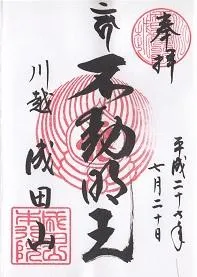 奉拝
平成二十七年
七月二十日
不動明王
川越
成田山